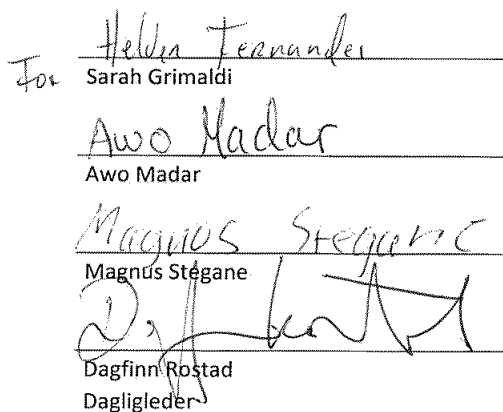 Helder Fernandes
For Sarah Grimaldi
Awo Madar
Awo Madar
Magnus Stegane
Magnus Stegane
Dagfinn Rostad
Dagligleder